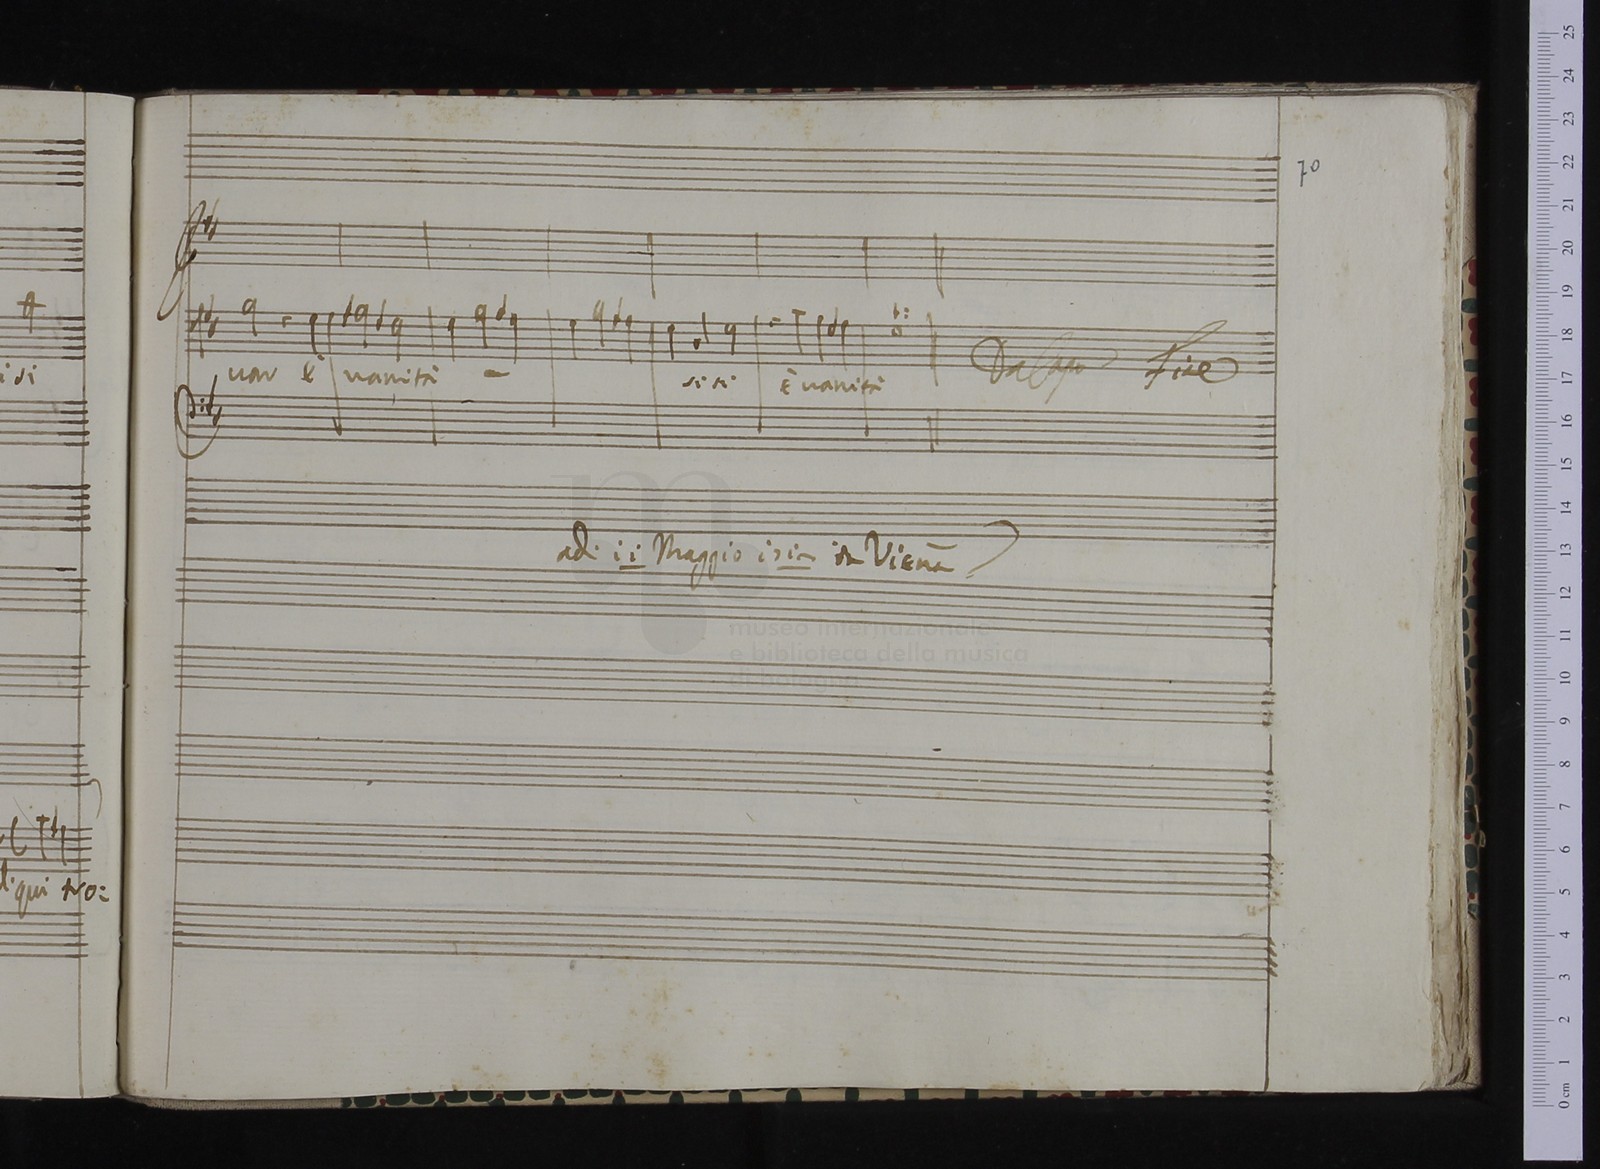 70
var è vanità
si si è vanità
Da Capo Fine
adi 11 Maggio in Vieña
isi
qui
museo internazionale
e biblioteca della musica
di bologna
25
24
23
22
21
20
19
18
17
16
15
14
13
12
11
10
9
8
7
6
5
4
3
2
1
0 cm